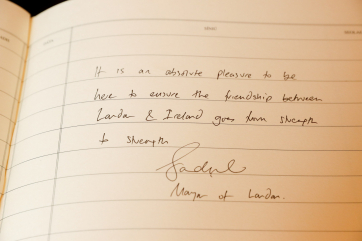 It is an absolute pleasure to be
here to ensure the friendship between
London & Ireland goes from strength
to strength
Sadiq
Mayor of London.